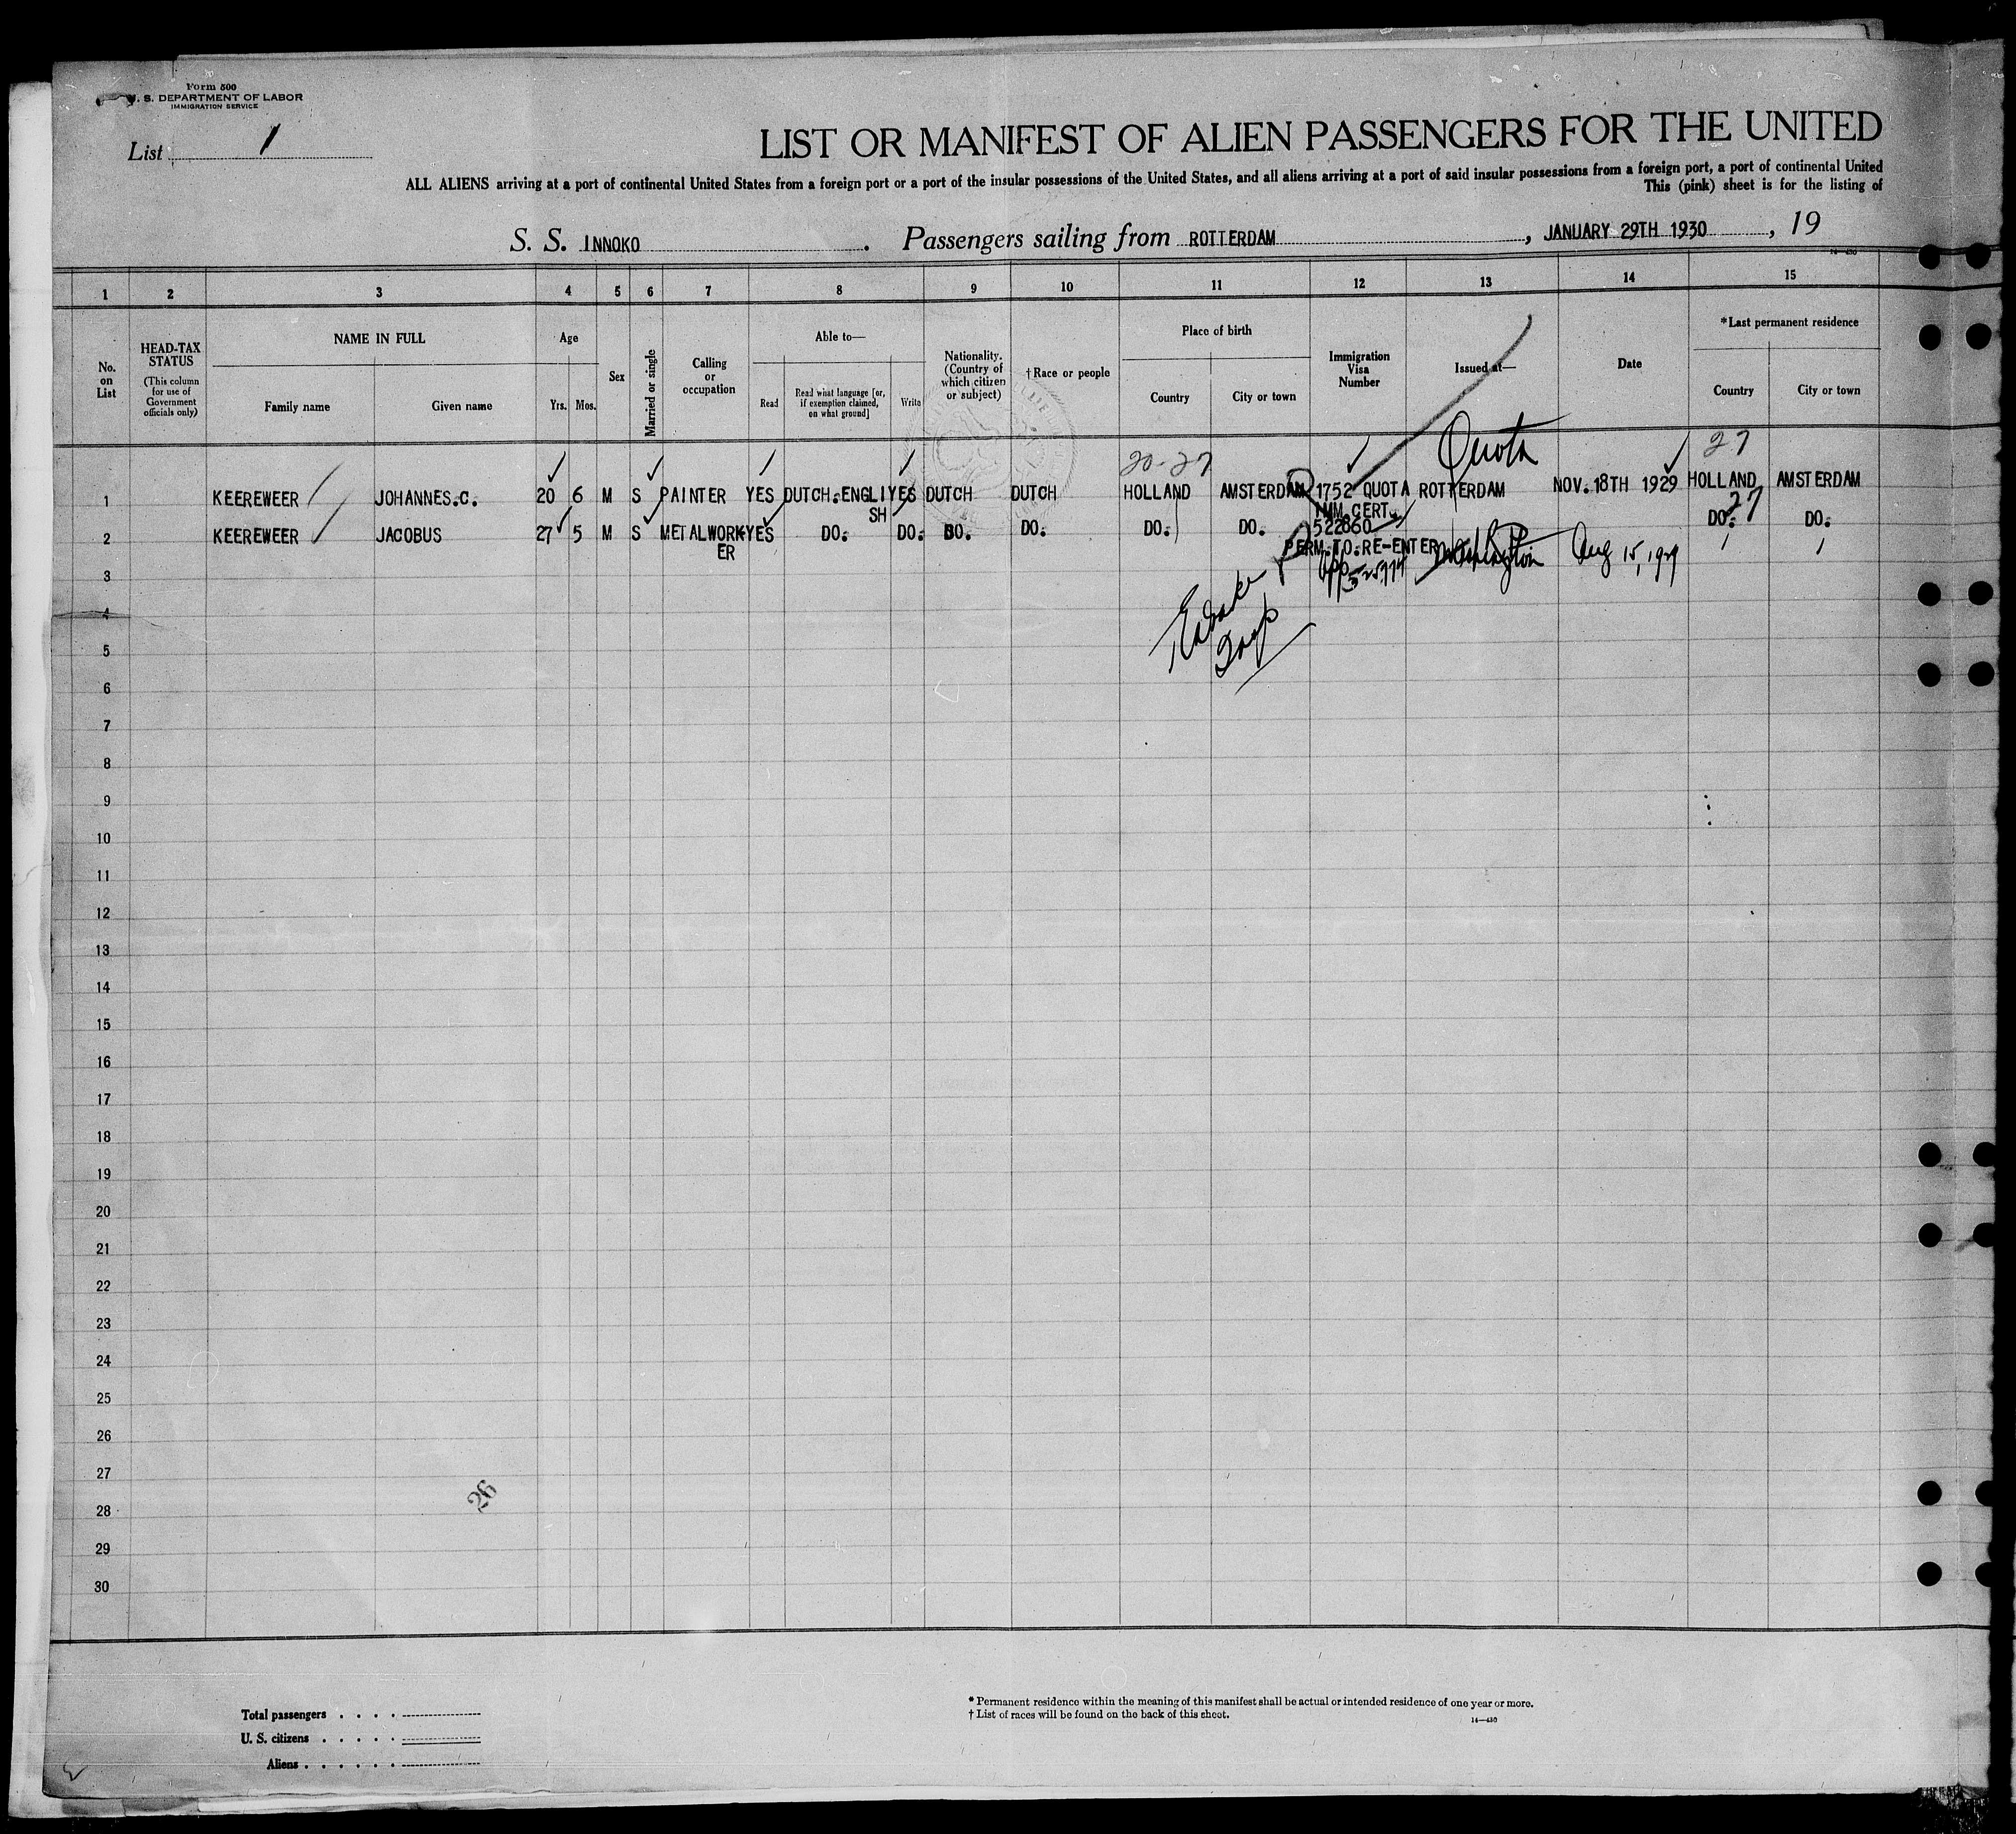 Form 500
U. S. DEPARTMENT OF LABOR
IMMIGRATION SERVICE
List 1
LIST OR MANIFEST OF ALIEN PASSENGERS FOR THE UNITED
ALL ALIENS arriving at a port of continental United States from a foreign port or a port of the insular possessions of the United States, and all aliens arriving at a port of said insular possessions from a foreign port, a port of continental United
This (pink) sheet is for the listing of
S. S. INNOKO . Passengers sailing from ROTTERDAM , JANUARY 29TH 1930 , 19
14—430
1 2 3 4 5 6 7 8 9 10 11 12 13 14 15
No. on List
HEAD-TAX STATUS
(This column for use of Government officials only)
NAME IN FULL
Family name Given name
Age
Yrs. Mos.
Sex
Married or single
Calling or occupation
Able to—
Read
Read what language [or, if exemption claimed, on what ground]
Write
Nationality. (Country of which citizen or subject)
† Race or people
Place of birth
Country City or town
Immigration Visa Number
Issued at—
Date
*Last permanent residence
Country City or town
20-27 Quota 27
1 KEEREWEER JOHANNES.C. 20 6 M S PAINTER YES DUTCH.ENGLISH YES DUTCH DUTCH HOLLAND AMSTERDAM 1752 QUOTA ROTTERDAM NOV.18TH 1929 HOLLAND AMSTERDAM
IMM.CERT.
27
2 KEEREWEER JACOBUS 27 5 M S METALWORKER YES DO. DO. DO. DO. DO. DO. 522860 DO. DO.
PERM.TO.RE-ENTER Washington Aug 15, 1929
3
4
5
6
7
8
9
10
11
12
13
14
15
16
17
18
19
20
21
22
23
24
25
26
27
28
29
30
26
Total passengers . . . .
U. S. citizens . . . . .
Aliens . . . . . .
* Permanent residence within the meaning of this manifest shall be actual or intended residence of one year or more.
† List of races will be found on the back of this sheet.
14—430